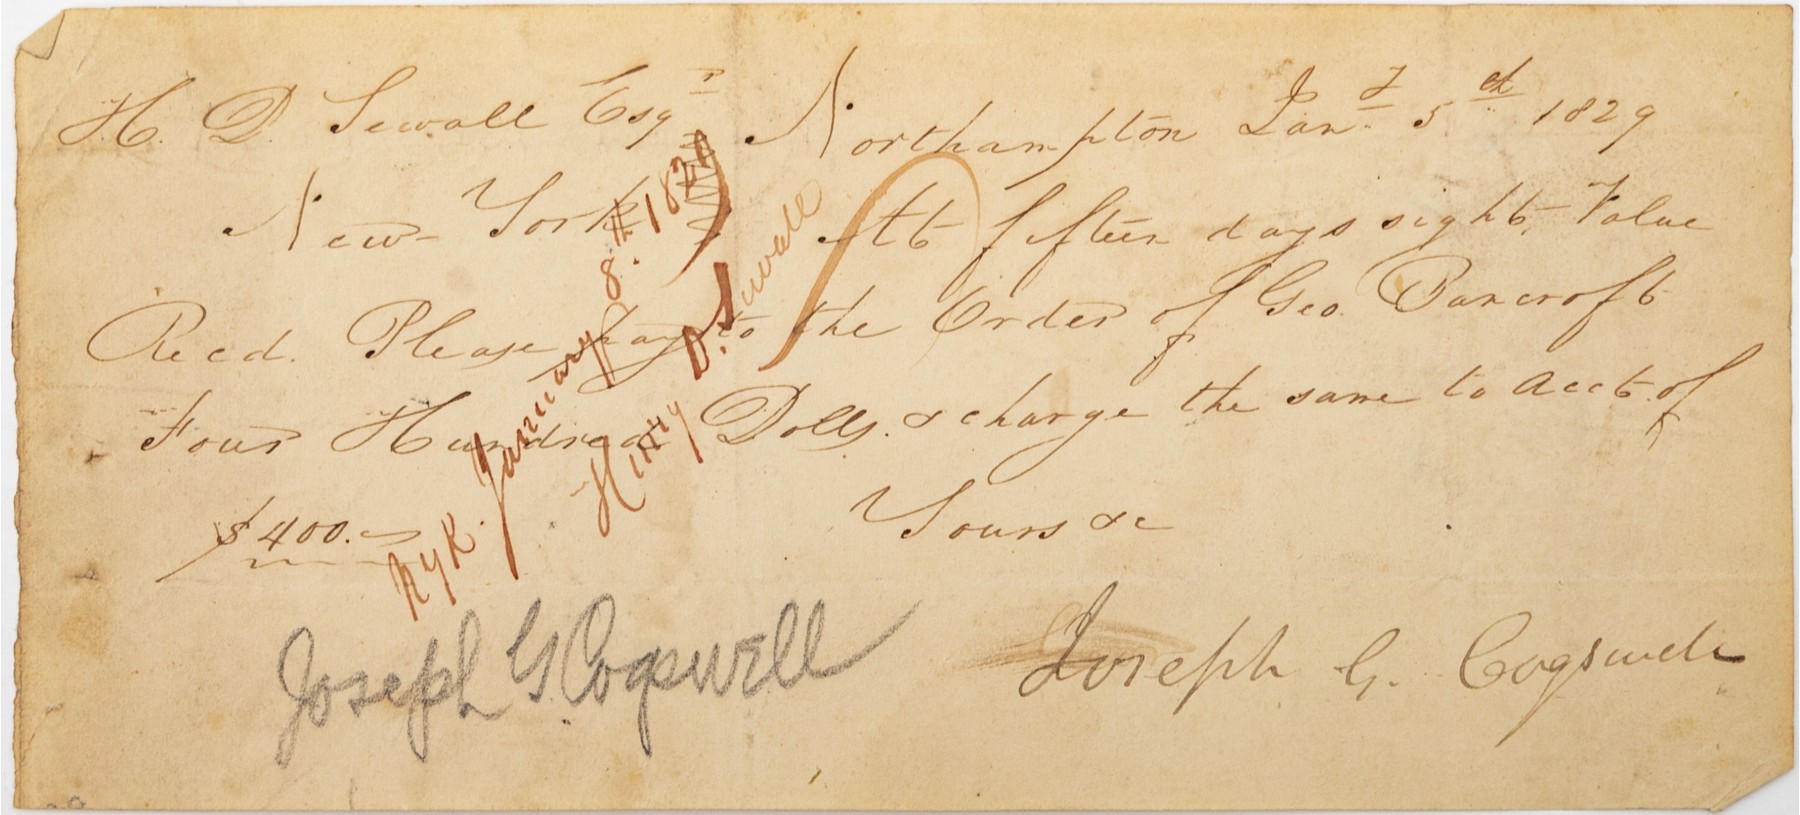 H. D. Sewall Esqr Northampton Jany 5th 1829
New York At fifteen days sight, Value
Recd. Please pay to the Order of Geo. Bancroft
Four Hundred Dolls. & charge the same to acct. of
$400. Yours &c
Joseph G. Cogswell
NYK. January 8.th 1829
Henry D. Sewall
Joseph G Cogswell